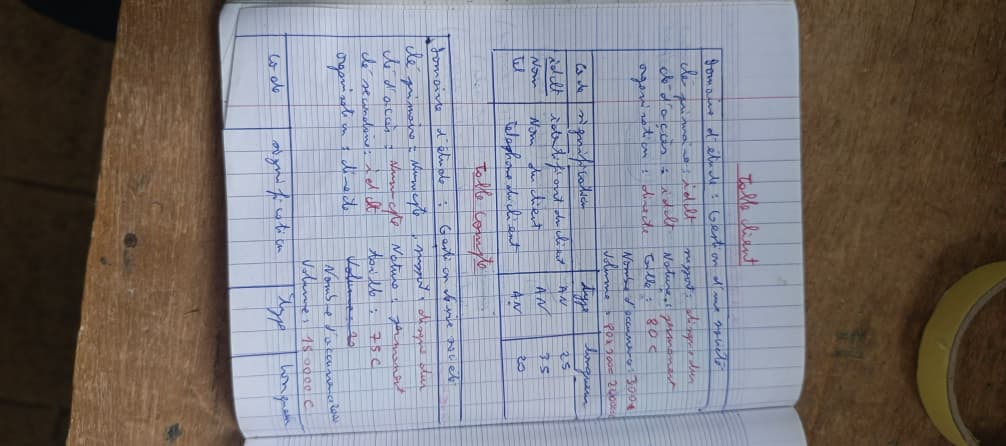 Table client
Domaine d'étude : Gestion d'une société
clé primaire : idclt support : disque dur
clé d'accès : idclt Nature : permanent
organisation : directe Taille : 80 C
Nombre d'occurrence : 3000
Volume : 80x3000
Code signification type longueur
idclt identifiant du client AN 25
Nom Nom du client AN 35
Tel telephone du client AN 20
Table compte
Domaine d'étude : Gestion d'une société
clé primaire : Numcpte support : disque dur
clé d'accès : Numcpte Nature : permanent
clé secondaire : idclt taille : 75 C
organisation : directe
Nombre d'occurrence
Volume : 150000 C
Code signification type longueur